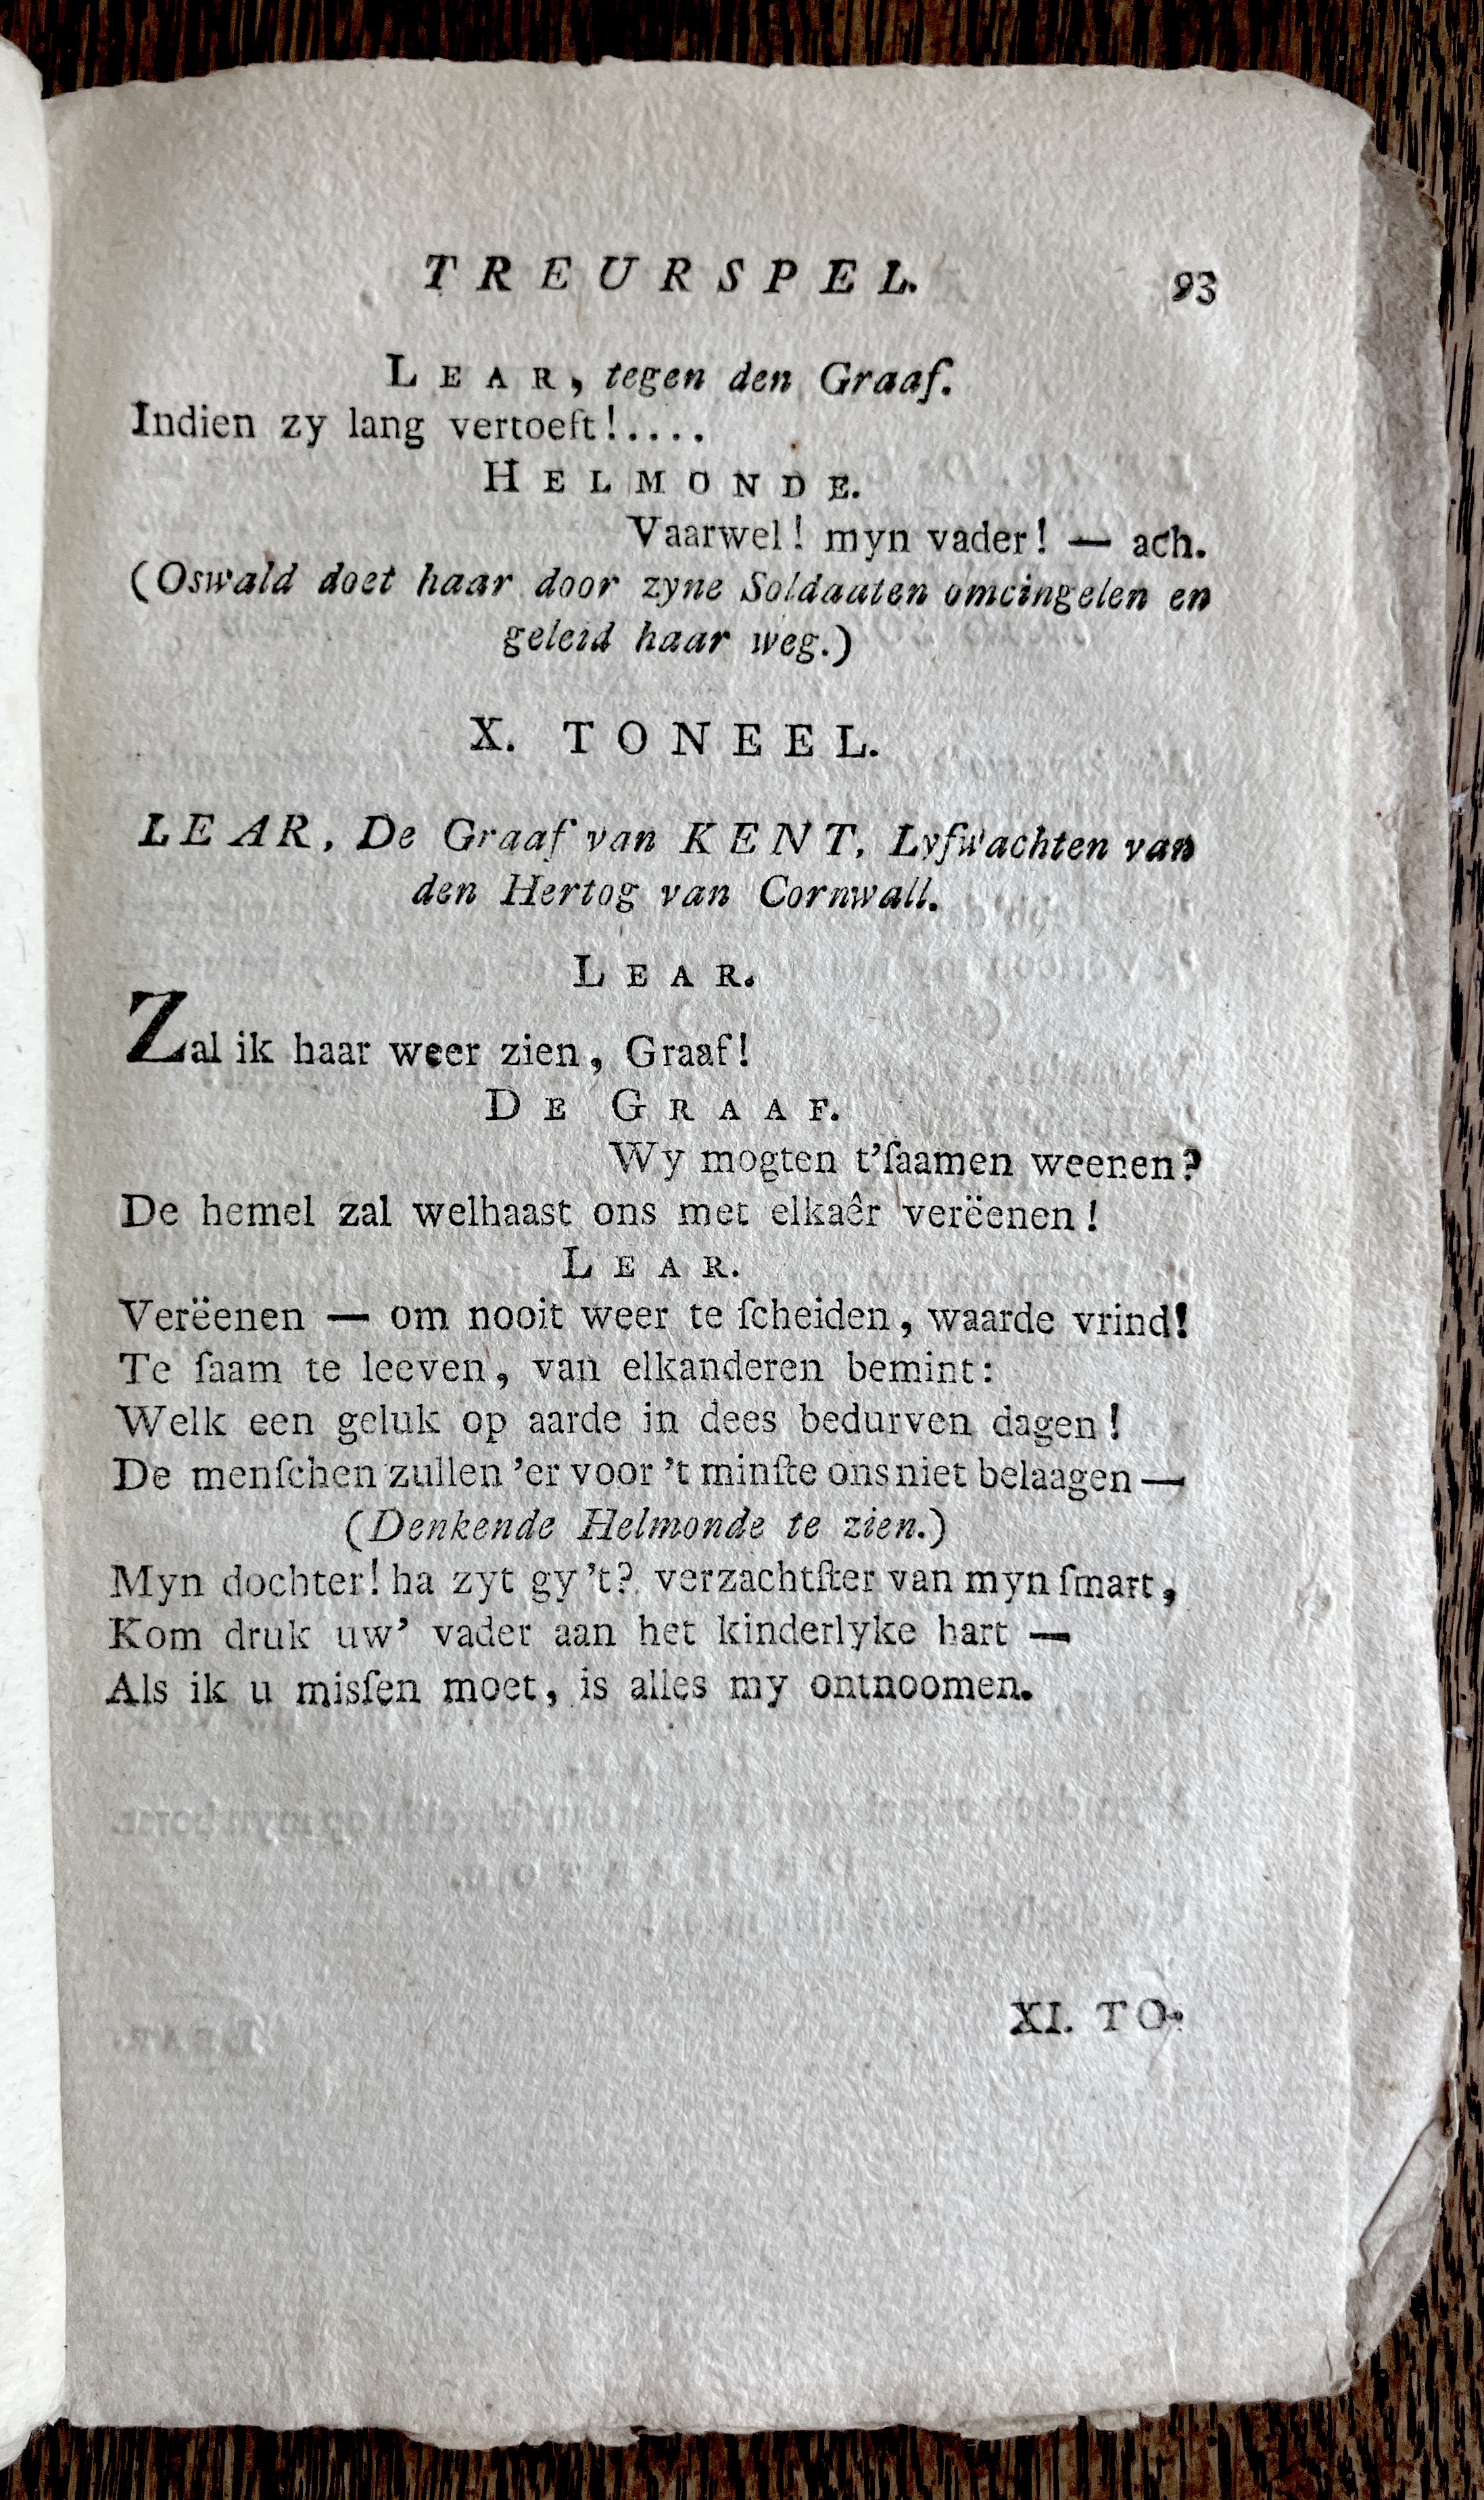 TREURSPEL. 93
LEAR, tegen den Graaf.
Indien zy lang vertoeft!....
HELMONDE.
Vaarwel! myn vader! — ach.
(Oswald doet haar door zyne Soldaaten omcingelen en
geleid haar weg.)
X. TONEEL.
LEAR, De Graaf van KENT, Lyfwachten van
den Hertog van Cornwall.
LEAR.
Zal ik haar weer zien, Graaf!
DE GRAAF.
Wy mogten t'ſaamen weenen?
De hemel zal welhaast ons met elkaêr verëenen!
LEAR.
Verëenen — om nooit weer te ſcheiden, waarde vrind!
Te ſaam te leeven, van elkanderen bemint:
Welk een geluk op aarde in dees bedurven dagen!
De menſchen zullen 'er voor 't minſte ons niet belaagen —
(Denkende Helmonde te zien.)
Myn dochter! ha zyt gy 't? verzachtſter van myn ſmart,
Kom druk uw' vader aan het kinderlyke hart —
Als ik u misſen moet, is alles my ontnoomen.
XI. TO-